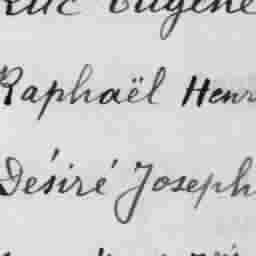 Luc Eugène
Raphaël Henr
Désiré Joseph